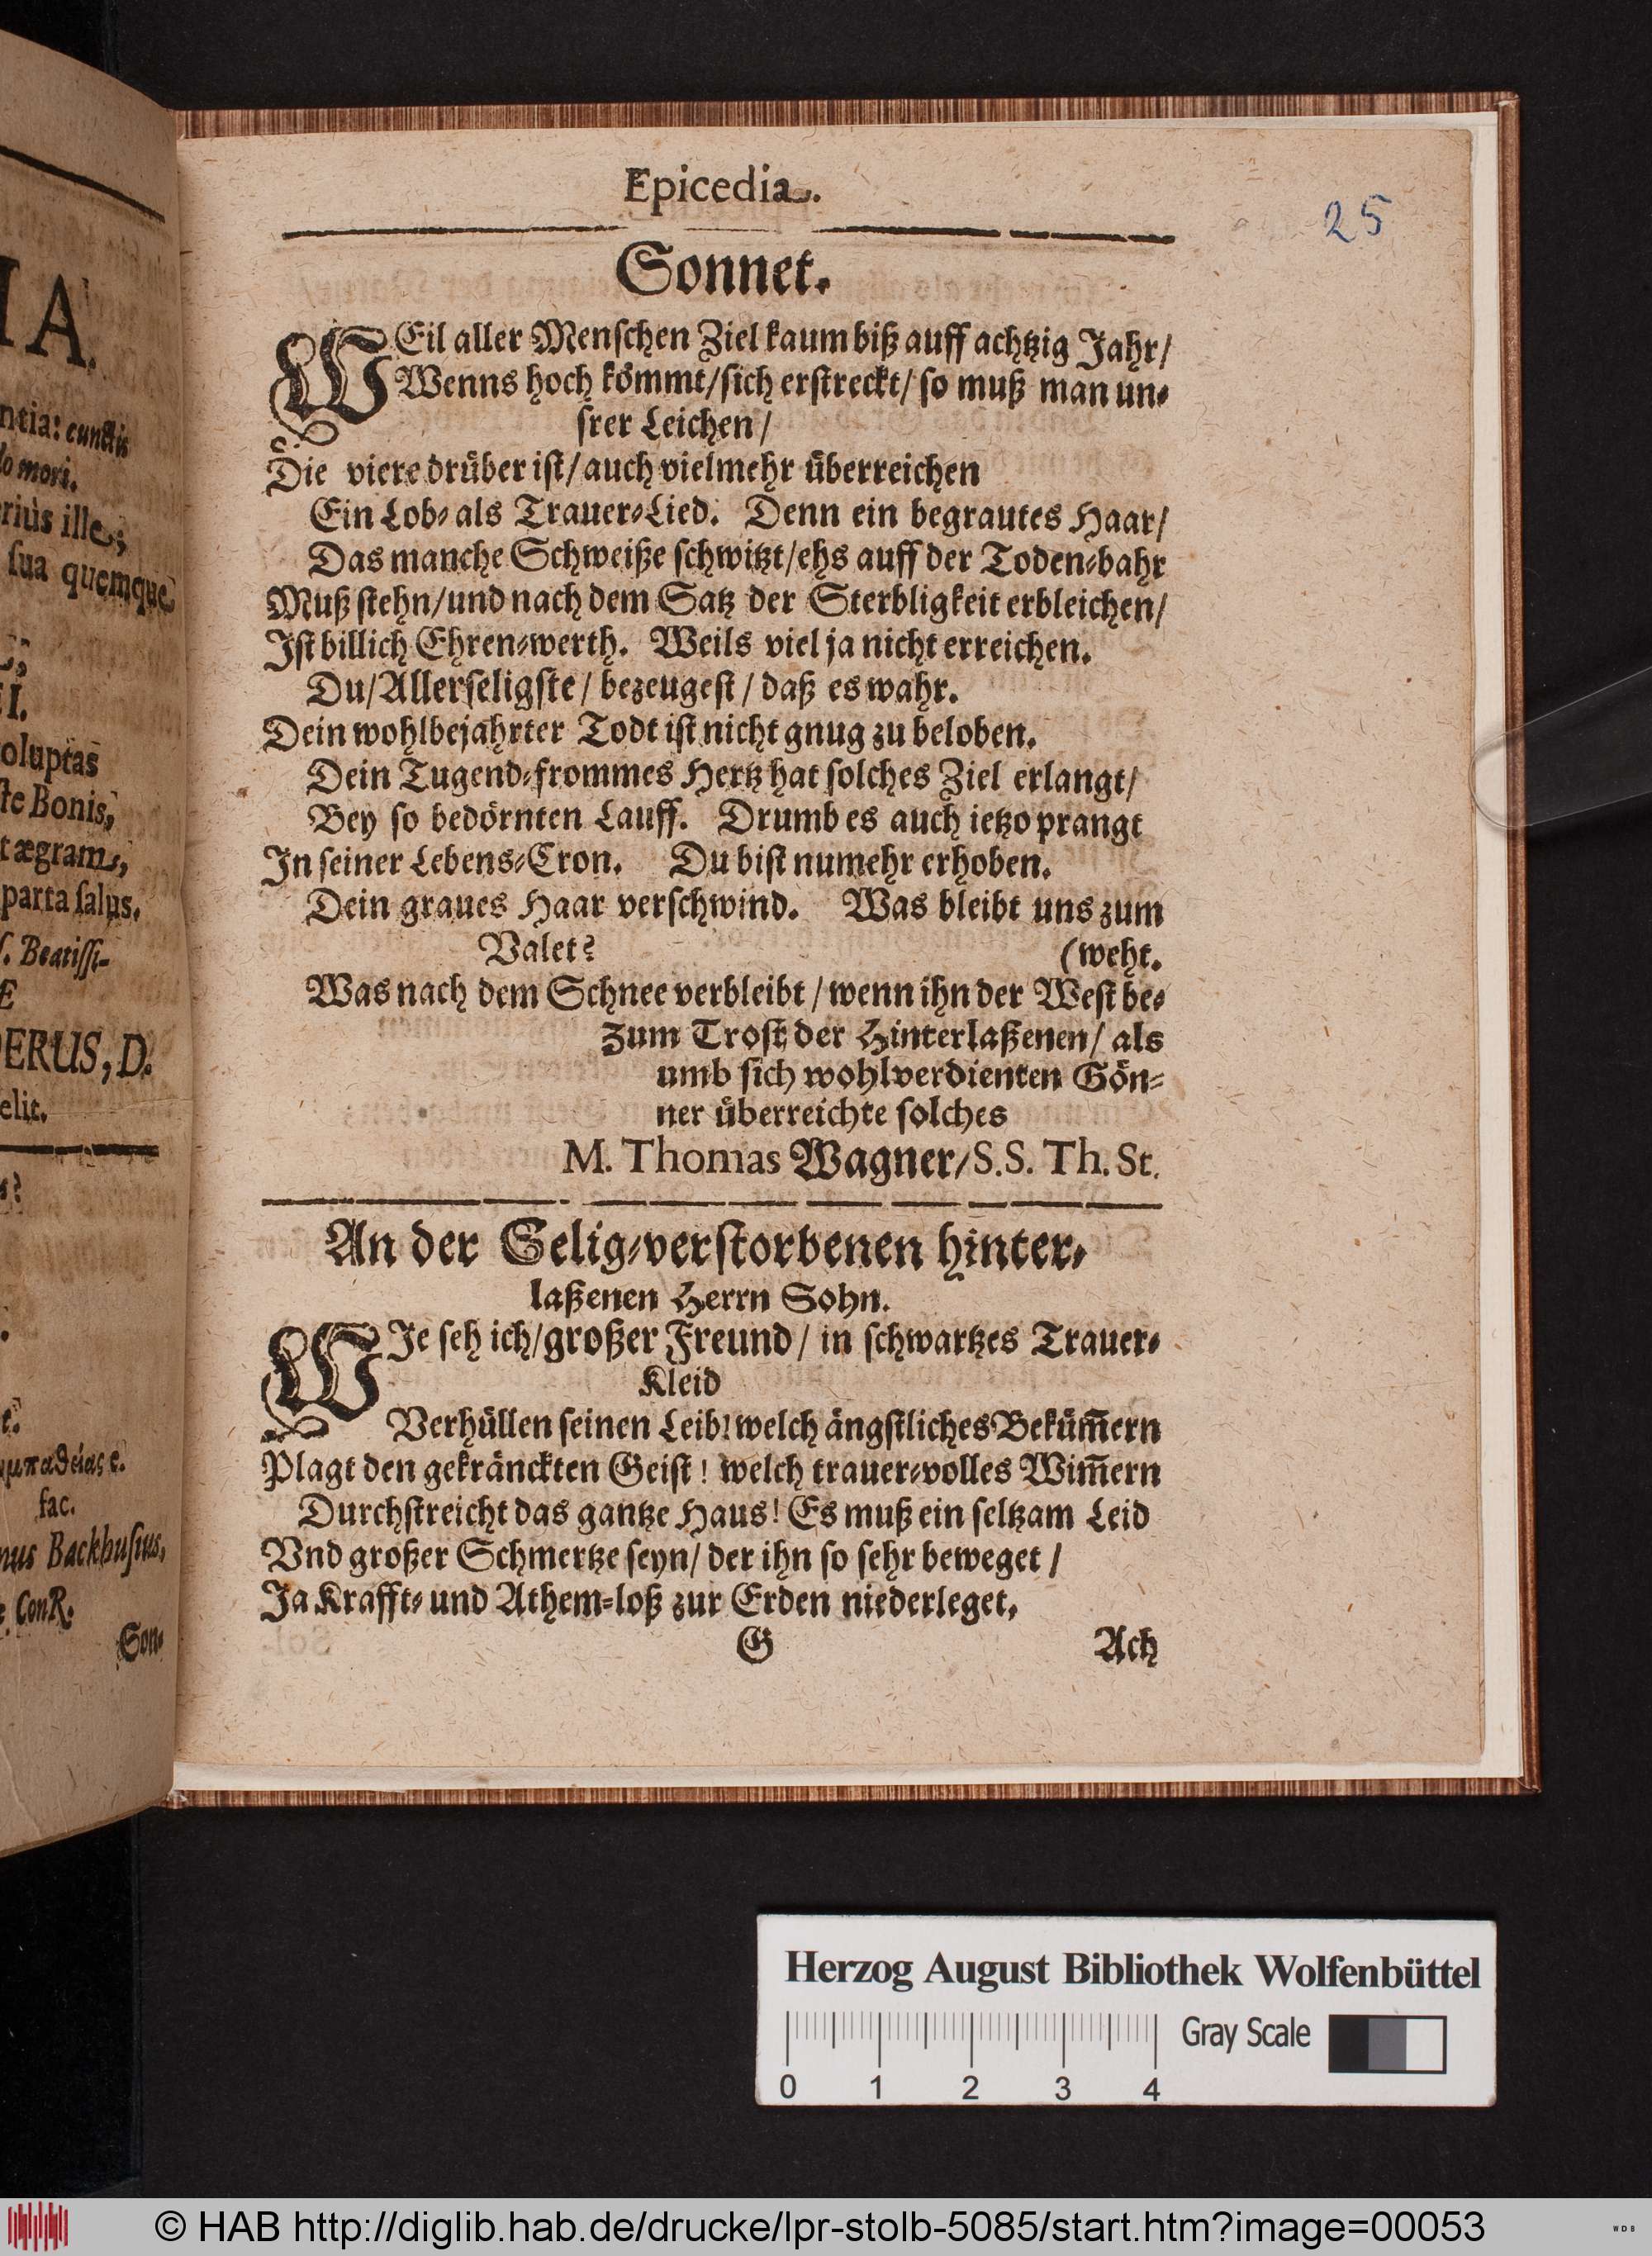 IA.
ntia: cunctis
lo mori.
rius ille;
sua quemque
I.
oluptas
ste Bonis,
t ægram,
parta salus.
s. Beatissi-
Æ
DERUS, D.
elit.
fac.
nus Backhusius,
ConR.
Son-
Epicedia.
25
Sonnet.
WEil aller Menschen Ziel kaum biß auff achtzig Jahr/
Wenns hoch kömmt/sich erstreckt/ so muß man un-
srer Leichen/
Die viere drüber ist/auch vielmehr überreichen
Ein Lob- als Trauer-Lied. Denn ein begrautes Haar/
Das manche Schweiße schwitzt/ehs auff der Toden-bahr
Muß stehn/und nach dem Satz der Sterbligkeit erbleichen/
Ist billich Ehren-werth. Weils viel ja nicht erreichen.
Du/Allerseligste/ bezeugest/ daß es wahr.
Dein wohlbejahrter Todt ist nicht gnug zu beloben.
Dein Tugend-frommes Hertz hat solches Ziel erlangt/
Bey so bedörnten Lauff. Drumb es auch ietzo prangt
In seiner Lebens-Cron. Du bist numehr erhoben.
Dein graues Haar verschwind. Was bleibt uns zum
Valet? (weht.
Was nach dem Schnee verbleibt/wenn ihn der West be-
Zum Trost der Hinterlaßenen/ als
umb sich wohlverdienten Gön-
ner überreichte solches
M. Thomas Wagner/S.S. Th. St.
An der Selig-verstorbenen hinter-
laßenen Herrn Sohn.
WIe seh ich/großer Freund/ in schwartzes Trauer-
Kleid
Verhüllen seinen Leib! welch ängstliches Beküm̄ern
Plagt den gekränckten Geist! welch trauer-volles Wim̄ern
Durchstreicht das gantze Haus! Es muß ein seltzam Leid
Vnd großer Schmertze seyn/ der ihn so sehr beweget/
Ja Krafft- und Athem-loß zur Erden niederleget.
G Ach
Herzog August Bibliothek Wolfenbüttel
Gray Scale
0 1 2 3 4
© HAB http://diglib.hab.de/drucke/lpr-stolb-5085/start.htm?image=00053
WDB